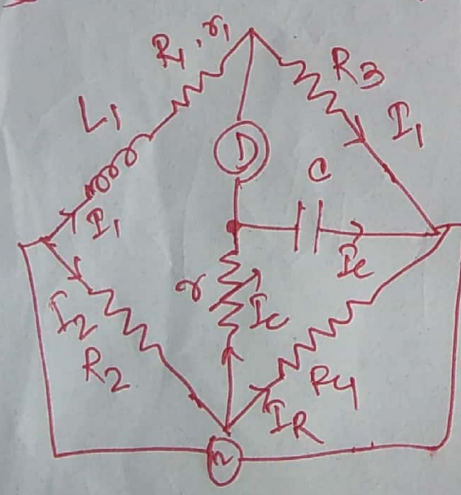 R1, r1
R3
L1
I1
D
C
I1
Ic
r
Ic
I2
R2
R4
IR
~